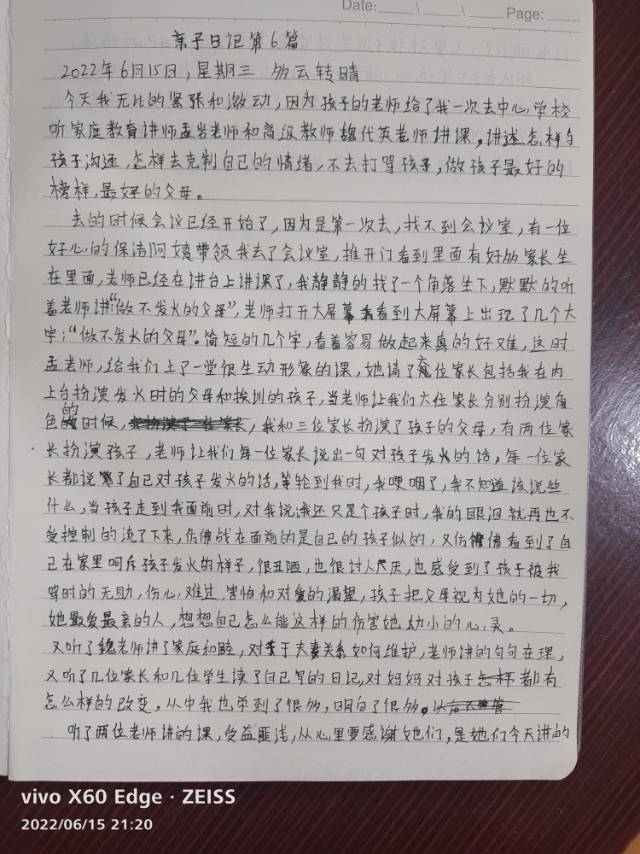 Date: \ \ Page:
亲子日记第6篇
2022年6月15日，星期三 多云转晴
今天我无比的紧张和激动，因为孩子的老师给了我一次去中心学校
听家庭教育讲师孟岩老师和高级教师魏代英老师讲课，讲述怎样与
孩子沟通，怎样去克制自己的情绪，不去打骂孩子，做孩子最好的
榜样，最好的父母。
去的时候会议已经开始了，因为是第一次去，找不到会议室，有一位
好心的保洁阿姨带领我去了会议室，推开门看到里面有好多家长坐
在里面，老师已经在讲台上讲课了，我静静的找了一个角落坐下，默默的听
着老师讲“做不发火的父母”，老师打开大屏幕我看到大屏幕上出现了几个大
字：“做不发火的父母”。简短的几个字，看着容易做起来真的好难，这时
孟老师，给我们上了一堂很生动形象的课，她请了六位家长包括我在内
上台扮演发火时的父母和挨训的孩子，当老师让我们六位家长分别扮演角
色的时候，我和三位家长扮演了孩子的父母，有两位家
长扮演孩子，老师让我们每一位家长说出一句对孩子发火的话，每一位家
长都说了自己对孩子发火的话，等轮到我时，我哽咽了，我不知道该说些
什么，当孩子走到我面前时，对我说我还只是个孩子时，我的眼泪就再也不
受控制的流了下来，仿佛战在面前的是自己的孩子似的，又仿佛看到了自
己在家里呵斥孩子发火的样子，很丑陋，也很讨人厌，也感受到了孩子被我
骂时的无助，伤心，难过，害怕和对爱的渴望，孩子把父母视为她的一切，
她最爱最亲的人，想想自己怎么能这样的伤害她幼小的心灵。
又听了魏老师讲了家庭和睦，对于夫妻关系如何维护，老师讲的句句在理，
又听了几位家长和几位学生读了自己写的日记，对妈妈对孩子都有
怎么样的改变，从中我也学到了很多，明白了很多。
听了两位老师讲的课，受益匪浅，从心里要感谢她们，是她们今天讲的
vivo X60 Edge · ZEISS
2022/06/15 21:20